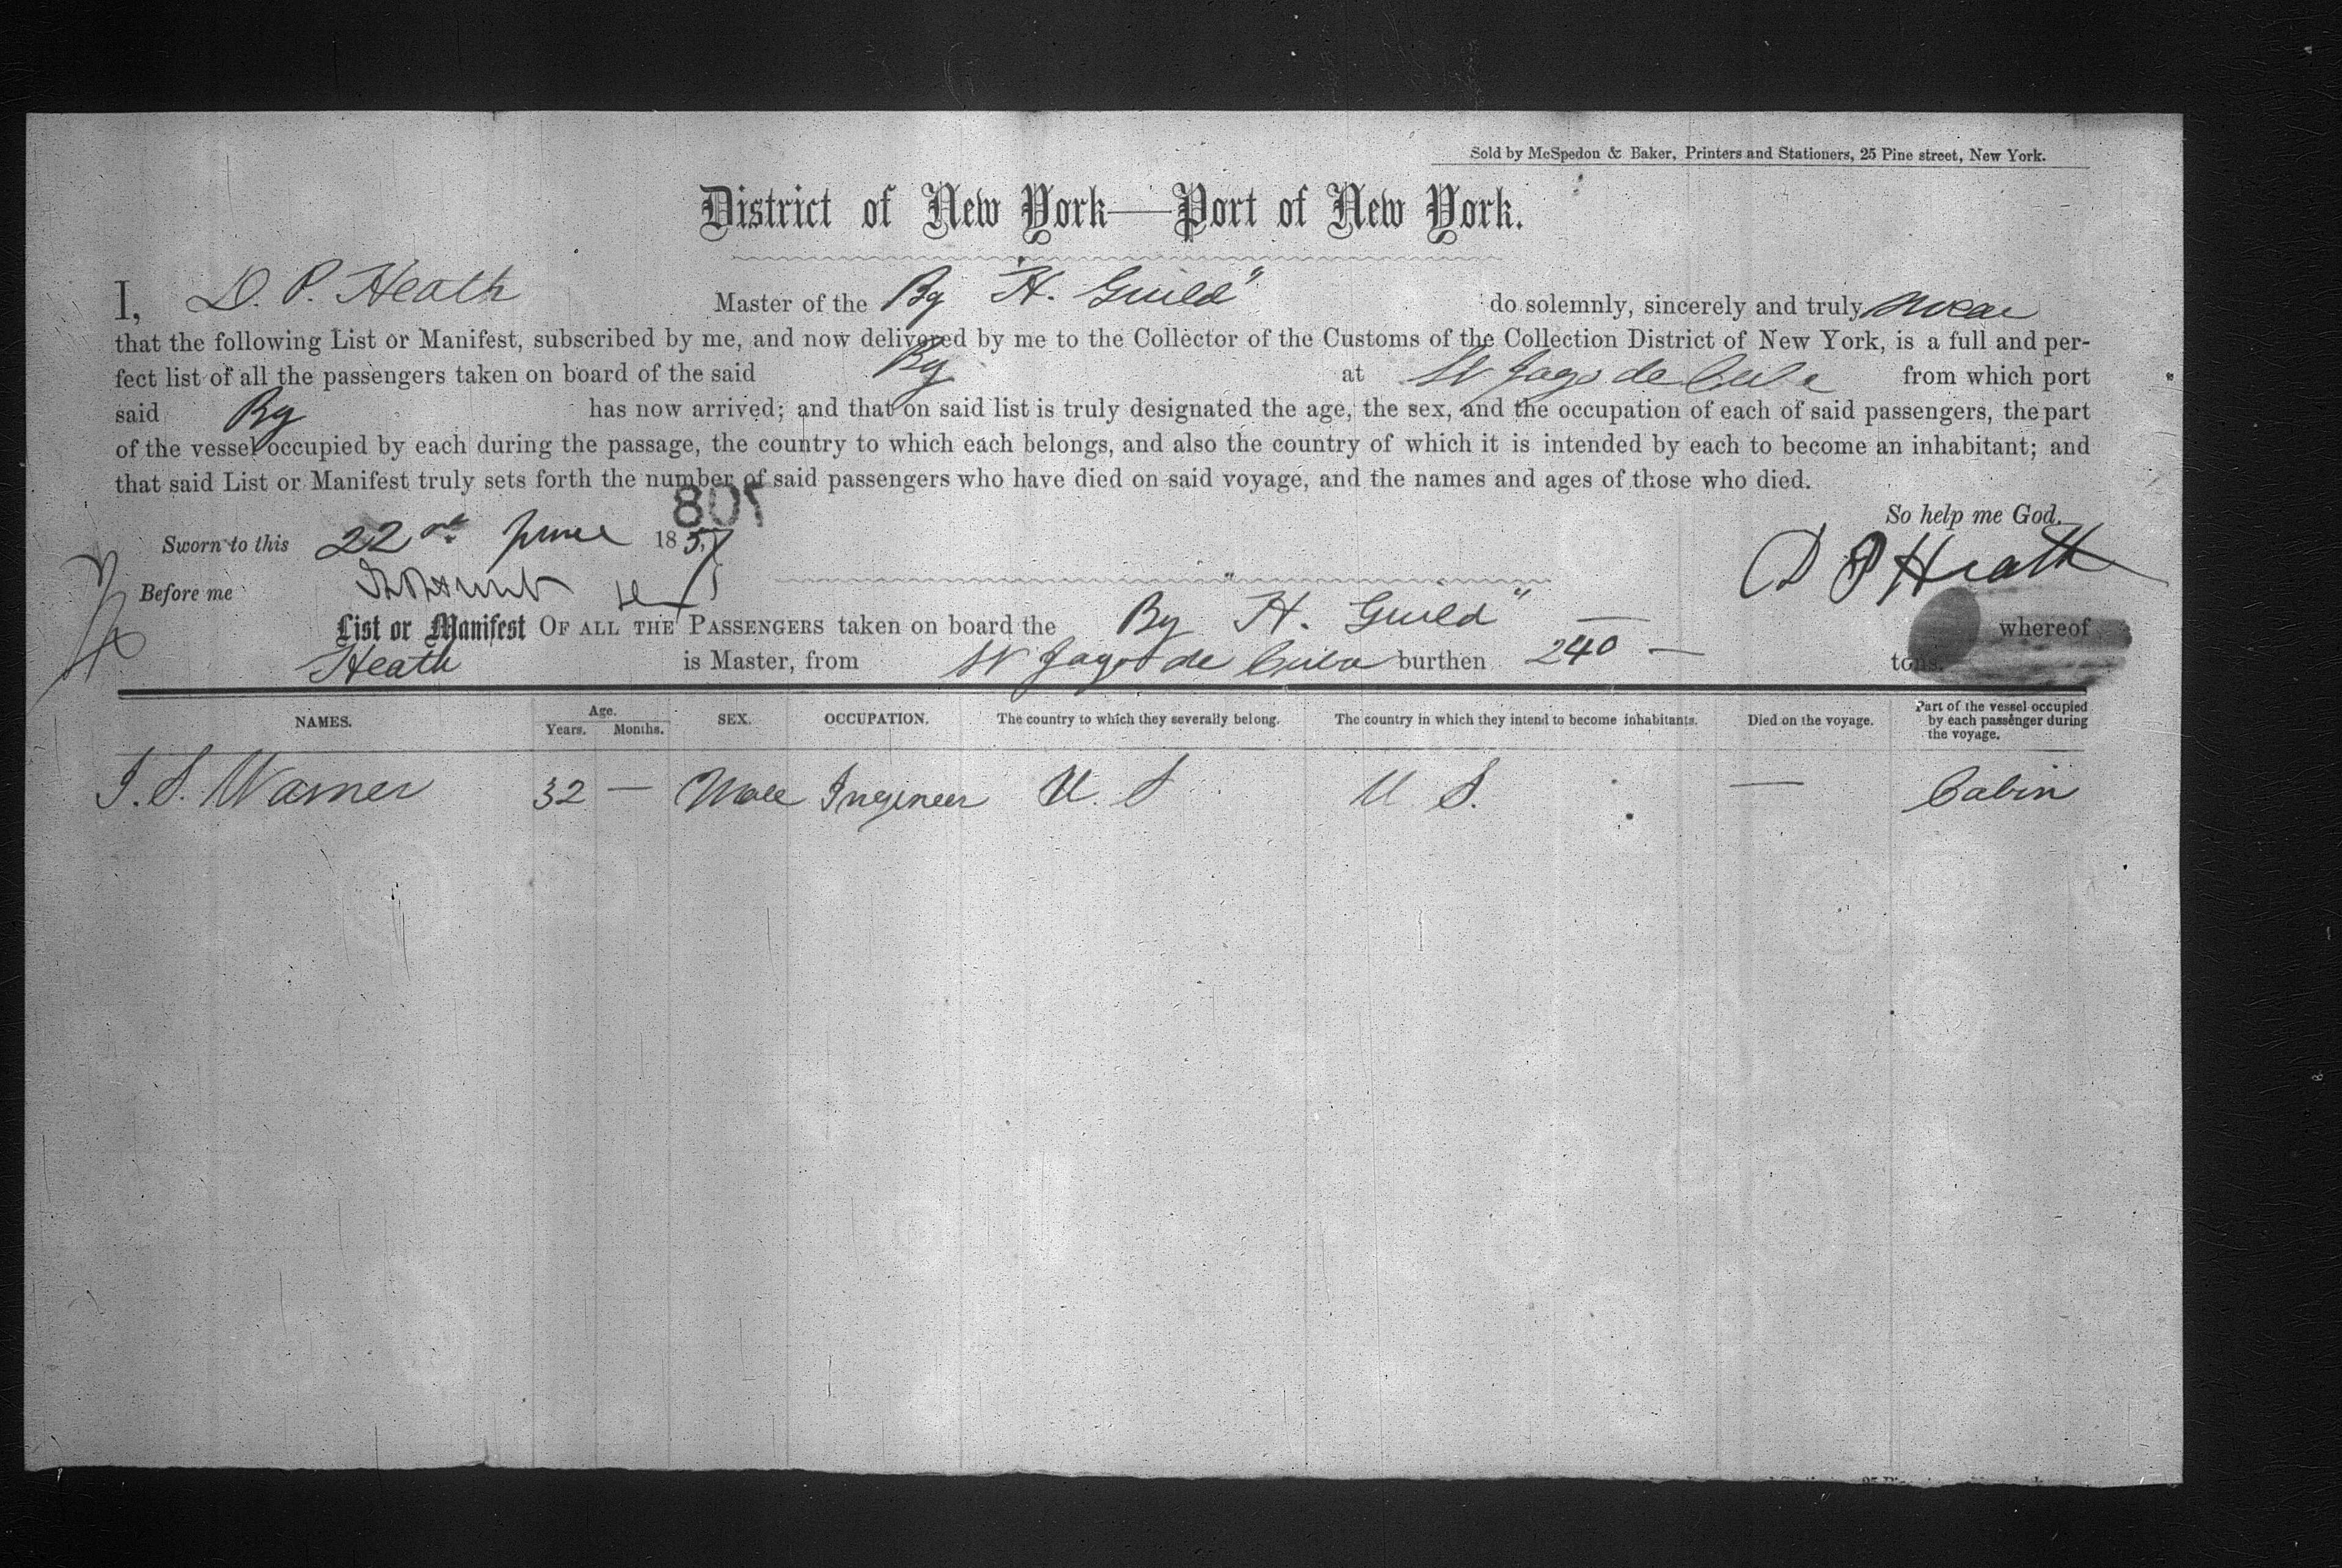 Sold by McSpedon & Baker, Printers and Stationers, 25 Pine street, New York.
District of New York—Port of New York.
I, D. P. Heath Master of the Bg "H. Guild" do solemnly, sincerely and truly swear
that the following List or Manifest, subscribed by me, and now delivered by me to the Collector of the Customs of the Collection District of New York, is a full and per-
fect list of all the passengers taken on board of the said Bg at St Jago de Cuba from which port
said Bg has now arrived; and that on said list is truly designated the age, the sex, and the occupation of each of said passengers, the part
of the vessel occupied by each during the passage, the country to which each belongs, and also the country of which it is intended by each to become an inhabitant; and
that said List or Manifest truly sets forth the number of said passengers who have died on said voyage, and the names and ages of those who died.
708
So help me God.
Sworn to this 22 June 1857
D P Heath
Before me
List or Manifest OF ALL THE PASSENGERS taken on board the Bg H. Guild" whereof
Heath is Master, from St Jago de Cuba burthen 240 — tons.
NAMES. Age. Years. Months. SEX. OCCUPATION. The country to which they severally belong. The country in which they intend to become inhabitants. Died on the voyage. Part of the vessel occupied by each passenger during the voyage.
J. S. Warner 32 — Male Ingineer U. S U. S. — Cabin